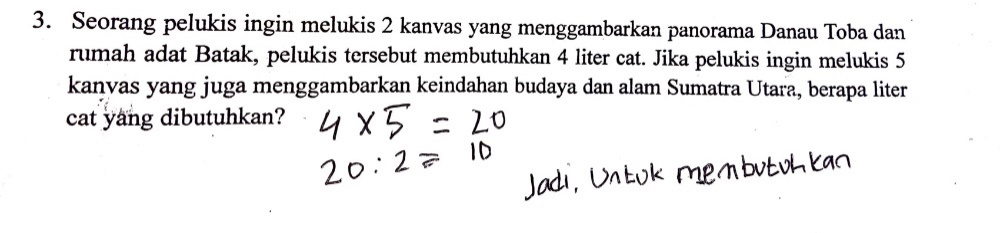 3. Seorang pelukis ingin melukis 2 kanvas yang menggambarkan panorama Danau Toba dan
rumah adat Batak, pelukis tersebut membutuhkan 4 liter cat. Jika pelukis ingin melukis 5
kanvas yang juga menggambarkan keindahan budaya dan alam Sumatra Utara, berapa liter
cat yang dibutuhkan?
4 x 5 = 20
20 : 2 = 10
Jadi, Untuk membutuhkan